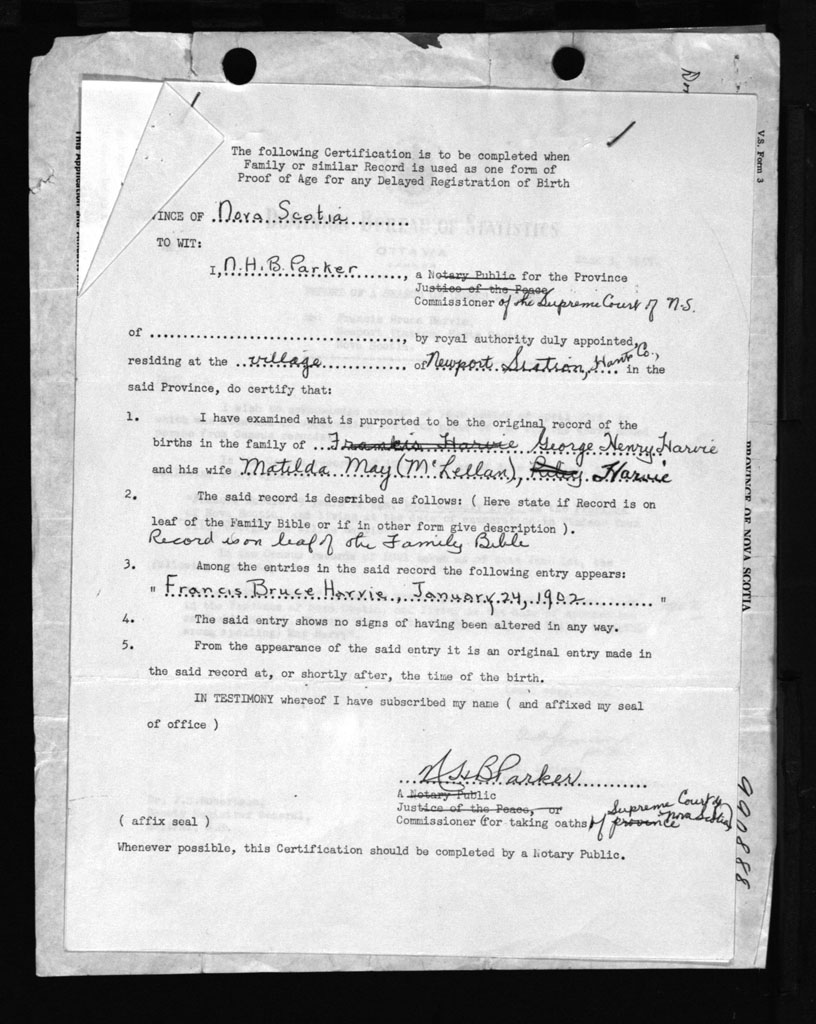 The following Certification is to be completed when
Family or similar Record is used as one form of
Proof of Age for any Delayed Registration of Birth
V.S. Form 3
DOMINION BUREAU OF STATISTICS
OTTAWA
INCE OF Nova Scotia
TO WIT:
I, N.H.B. Parker, a Notary Public for the Province
Justice of the Peace
Commissioner of the Supreme Court of N.S.
of ......................................., by royal authority duly appointed,
residing at the village of Newport Station, Hants Co., in the
said Province, do certify that:
1. I have examined what is purported to be the original record of the
births in the family of Francis Harvie George Henry Harvie
and his wife Matilda May (McLellan), Harvie
2. The said record is described as follows: ( Here state if Record is on
leaf of the Family Bible or if in other form give description ).
Record is on leaf of the Family Bible
3. Among the entries in the said record the following entry appears:
" Francis Bruce Harvie, January 24, 1902 "
4. The said entry shows no signs of having been altered in any way.
5. From the appearance of the said entry it is an original entry made in
the said record at, or shortly after, the time of the birth.
IN TESTIMONY whereof I have subscribed my name ( and affixed my seal
of office )
N H B Parker
A Notary Public
Justice of the Peace, or
Commissioner (for taking oaths) of province Supreme Court of Nova Scotia
( affix seal )
Whenever possible, this Certification should be completed by a Notary Public.
PROVINCE OF NOVA SCOTIA
990888